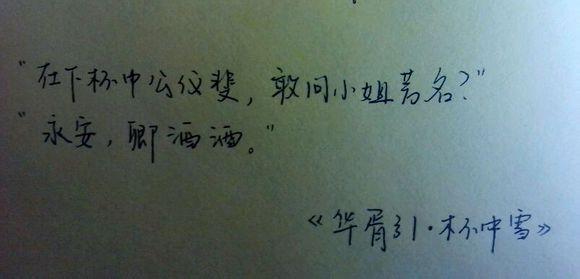 “在下杯中公仪斐，敢问小姐芳名？”
“永安，卿酒酒。”
《华胥引·杯中雪》